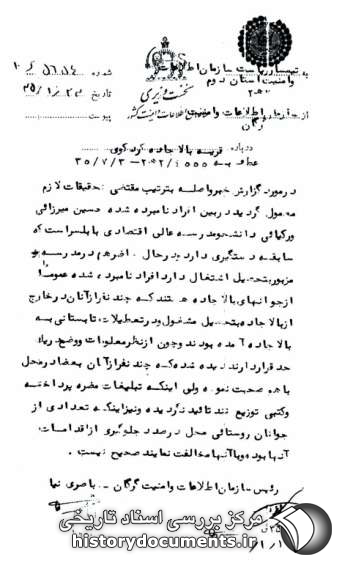 به تیمسار ریاست سازمان اطلاعات
وامنیت استان دوم
نخست وزیری
سازمان اطلاعات وامنیت کشور
شماره
تاریخ
پیوست
از سازمان اطلاعات وامنیت
گرگان
درباره قریه بالا جاده کردکوی
عطف به ۳۵/۷/۳-۲ه۲/۴۵۵۵
درمورد گزارش خبر واصله بترتیب مقتضی تحقیقات لازم
معمول گردید دربین افراد نامبرده شده حسین میرزائی
ورکیائی دانشجو مدرسه عالی اقتصادی بابلسراست که
سابقه دستگیری دارد ودرحال حاضرهم درمدرسه
مزبوربتحصیل اشتغال دارد افراد نامبرده شده عموما
ازجوانهای بالا جاده هستند که چند نفرازآنان درخارج
ازبالا جاده بتحصیل مشغول ودرتعطیلات تابستانی به
بالا جاده آمده بودند وچون ازنظرمعلومات ووضع
قراردارند دیده شده که چند نفرازآنان بعضا درمحل
باهم صحبت نموده ولی اینکه تبلیغات مضره پرداخته
وکتبی توزیع کنند تائید نگردیده ونیزاینکه تعدادی از
جوانان روستائی محل درصدد جلوگیری ازاقدامات
آنها بوده وباآنها مخالفت نمایند صحیح نیست .
رئیس سازمان اطلاعات وامنیت گرگان - باصری نیا
مرکز بررسی اسناد تاریخی
historydocuments.ir